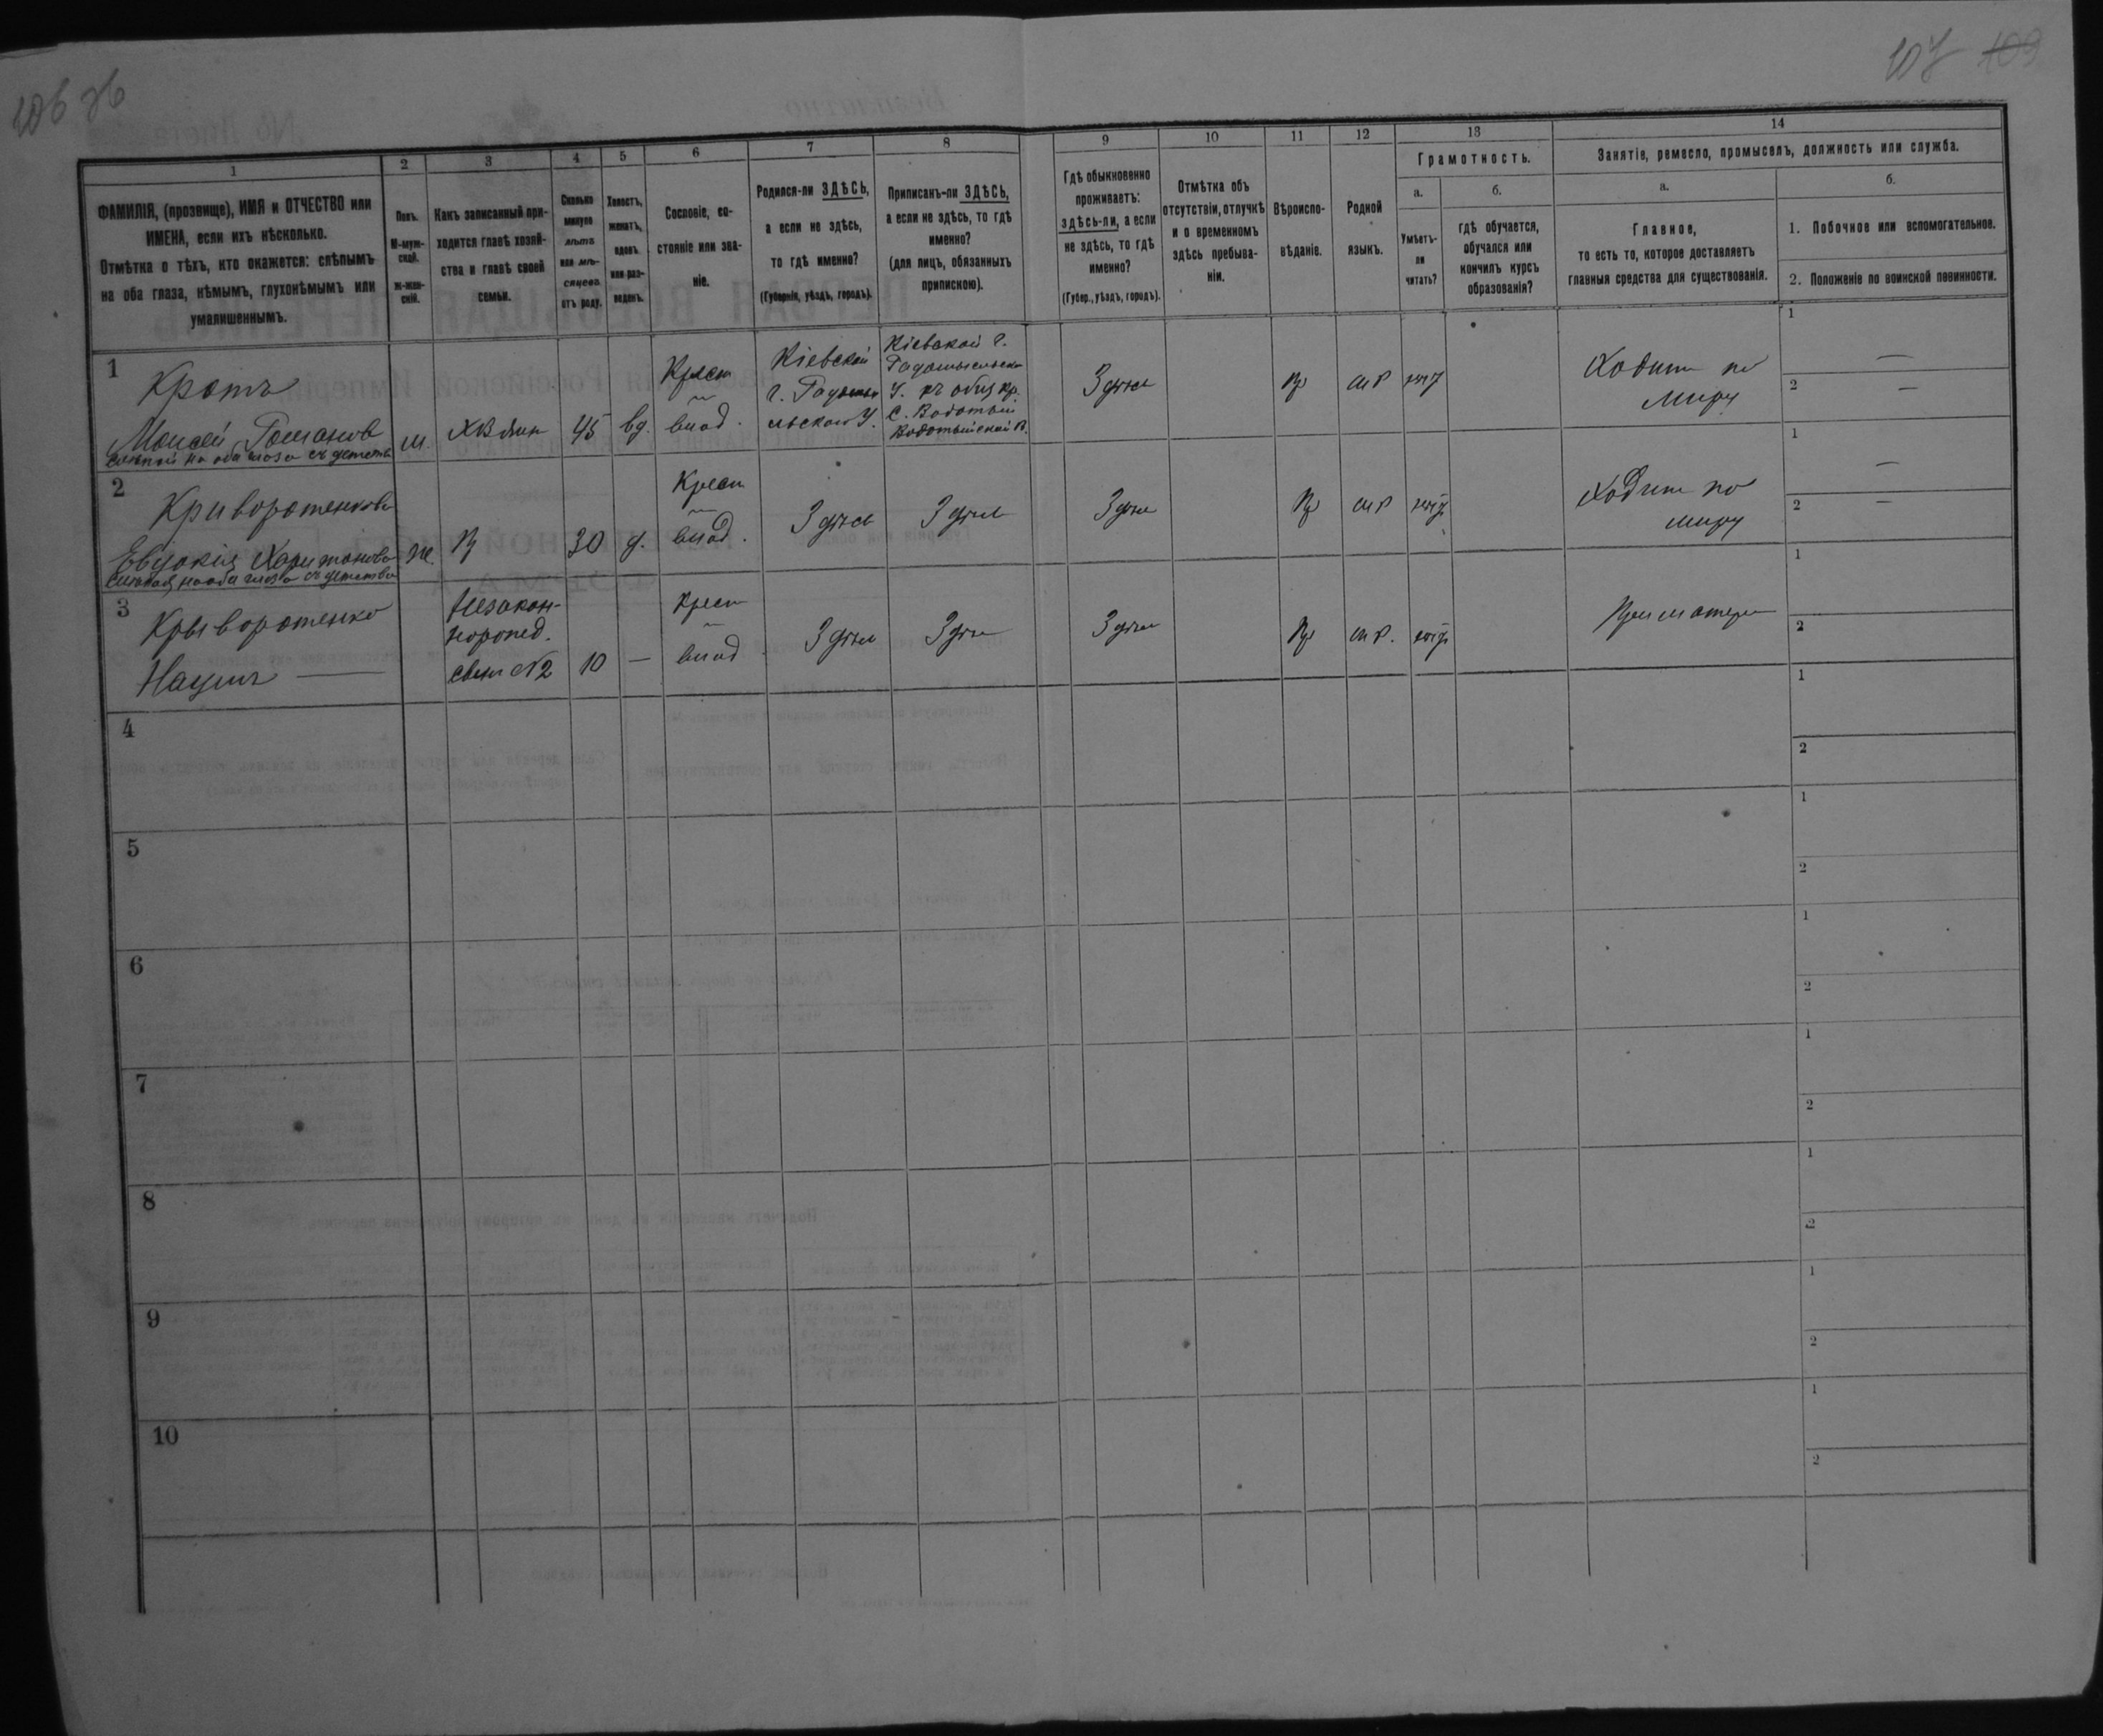 106 об
107 109
1 2 3 4 5 6 7 8 9 10 11 12 13 14
ФАМИЛІЯ, (прозвище), ИМЯ и ОТЧЕСТВО или
ИМЕНА, если ихъ нѣсколько.
Отмѣтка о тѣхъ, кто окажется: слѣпымъ
на оба глаза, нѣмымъ, глухонѣмымъ или
умалишеннымъ.
Полъ.
М-муж-
ской.
Ж-жен-
скій.
Какъ записанный при-
ходится главѣ хозяй-
ства и главѣ своей
семьи.
Сколько
минуло
лѣтъ
или мѣ-
сяцевъ
отъ роду.
Холостъ,
женатъ,
вдовъ
или раз-
веденъ.
Сословіе, со-
стояніе или зва-
ніе.
Родился-ли ЗДѢСЬ,
а если не здѣсь,
то гдѣ именно?
(Губернія, уѣздъ, городъ).
Приписанъ-ли ЗДѢСЬ,
а если не здѣсь, то гдѣ
именно?
(для лицъ, обязанныхъ
припискою).
Гдѣ обыкновенно
проживаетъ:
здѣсь-ли, а если
не здѣсь, то гдѣ
именно?
(Губер., уѣздъ, городъ).
Отмѣтка объ
отсутствіи, отлучкѣ
и о временномъ
здѣсь пребыва-
ніи.
Вѣроиспо-
вѣданіе.
Родной
языкъ.
Грамотность.
а.
Умѣетъ-
ли
читать?
б.
гдѣ обучается,
обучался или
кончилъ курсъ
образованія?
Занятіе, ремесло, промыселъ, должность или служба.
а.
Главное,
то есть то, которое доставляетъ
главныя средства для существованія.
б.
1. Побочное или вспомогательное.
2. Положеніе по воинской повинности.
1
Кротъ
Моисей Романов
слѣпой на оба глаза съ детства
м.
хозяин
45
вд.
Крест
влад.
Кіевской
г. Радомы
сльского У.
Кіевской г.
Радомысльск
У. къ общ кр.
с. Водотыи
Водотыйской в.
Здѣсь
Пр
мр
нѣт
Ходит по
миру
1 —
2 —
2
Криворотенкова
Евдокия Харитонова
слѣпая на оба глаза съ детства
ж.
30
д.
Крест
влад.
Здѣсь
Здѣсь
Здѣсь
Пр
мр
нѣт
Ходит по
миру
1 —
2 —
3
Крыворотенко
Наумъ —
Незакон-
норожед.
сын №2
10
—
крест
влад
Здѣсь
Здѣсь
Здѣсь
Пр
мр.
нѣт
При матери
1
2
4
1
2
5
1
2
6
1
2
7
1
2
8
1
2
9
1
2
10
1
2